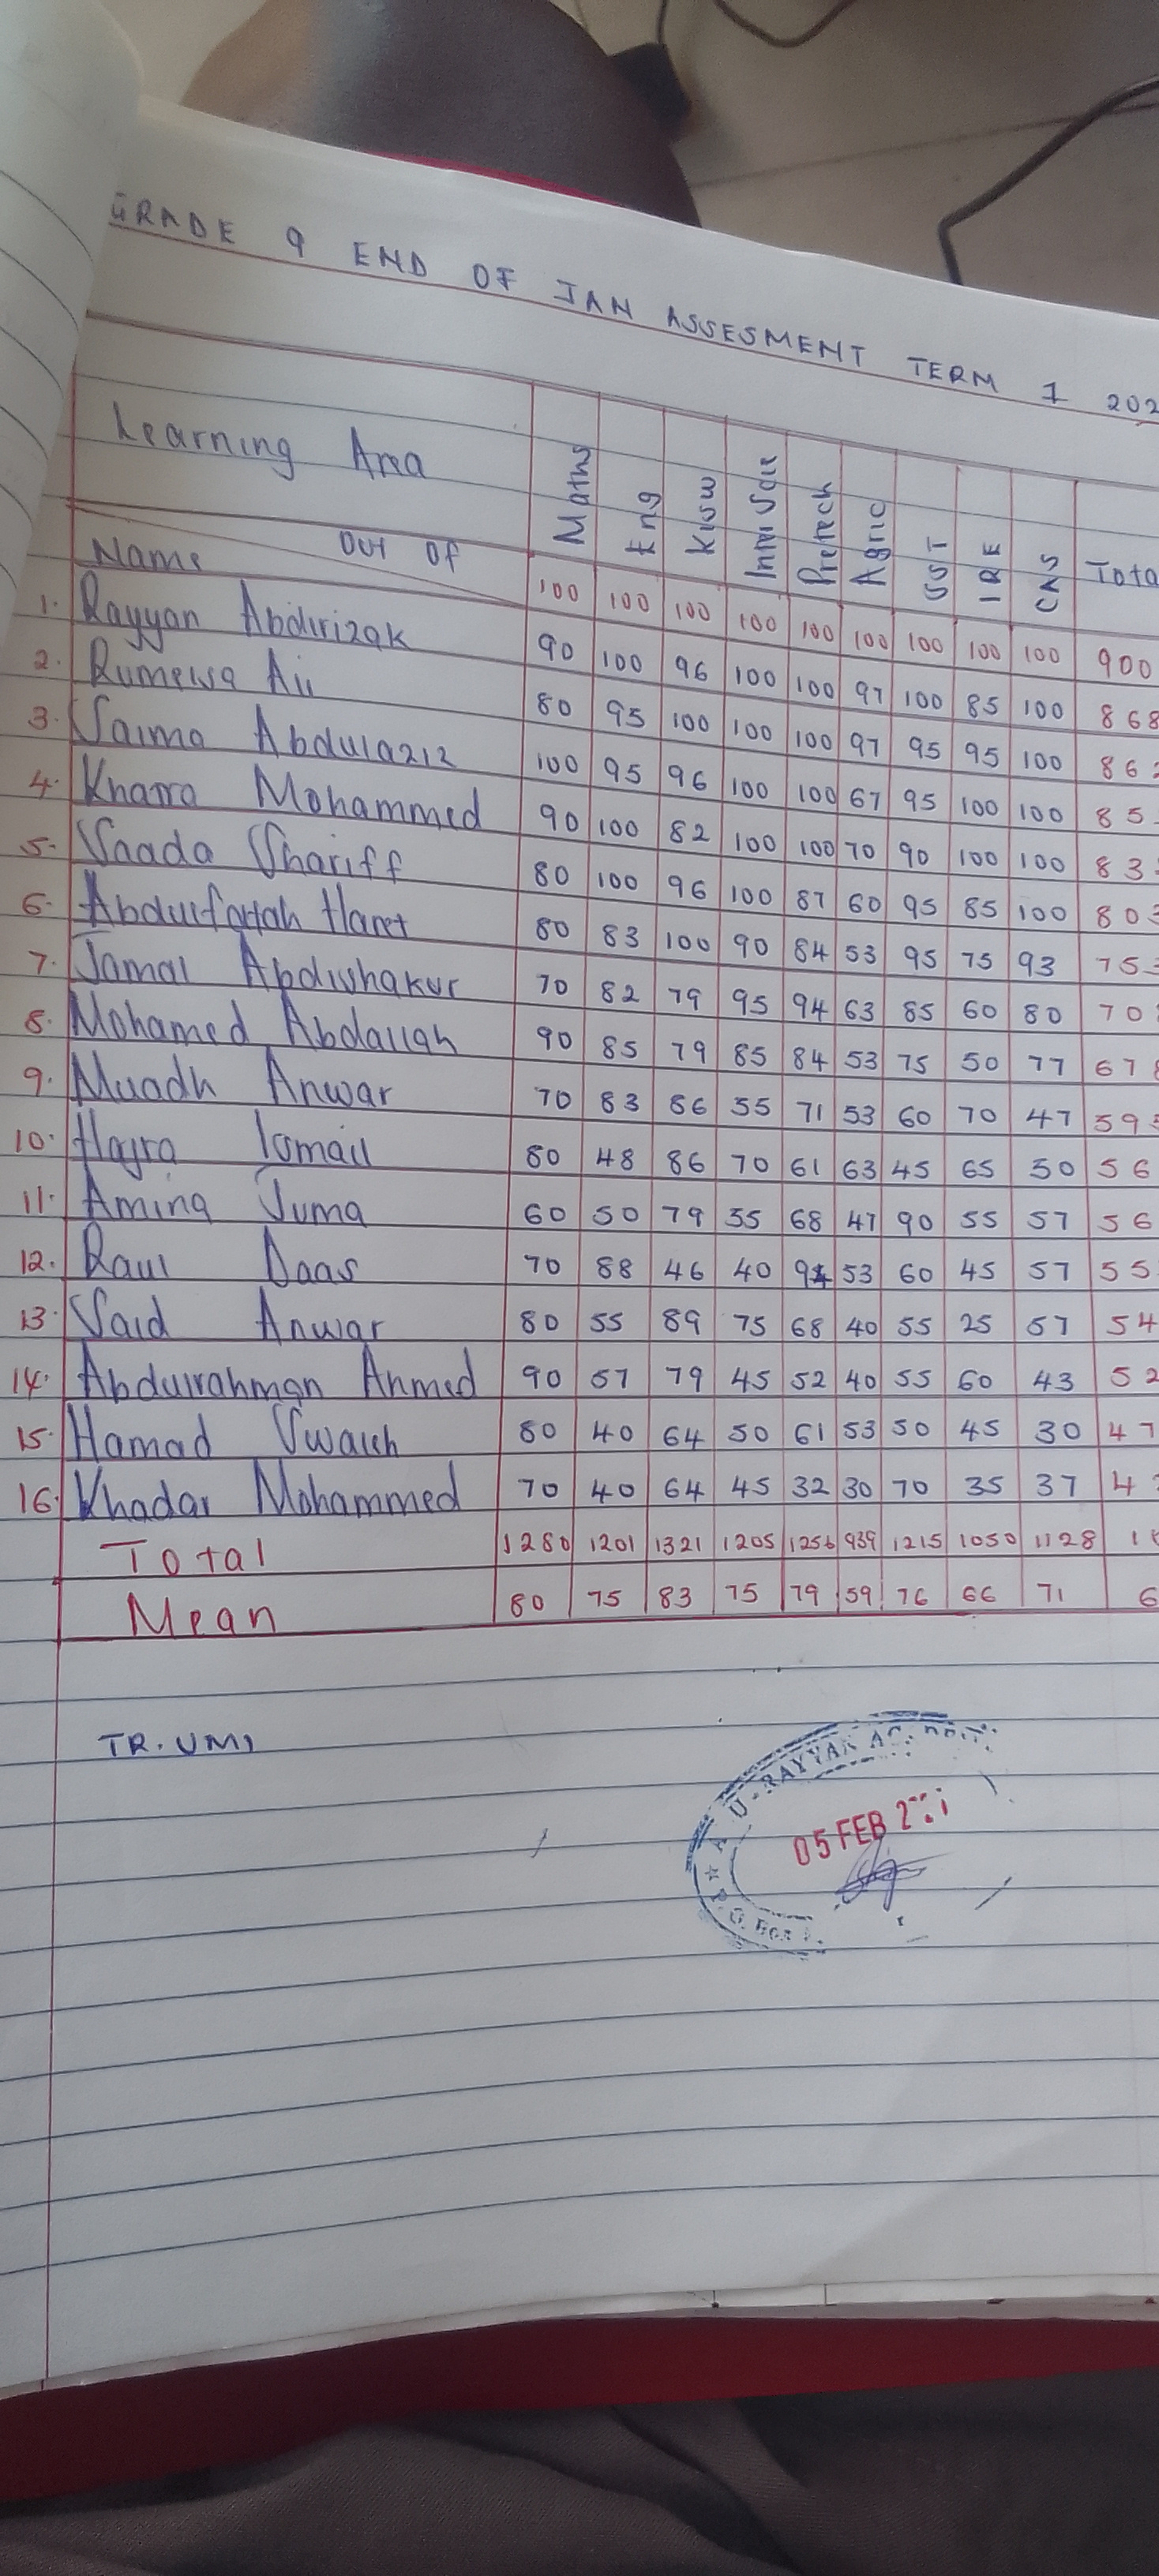 GRADE 9 END OF JAN ASSESMENT TERM 1 202
Learning Area Maths Eng Kisw Inter Scie Pretech Agric SST IRE CAS Tota
Name Out Of 100 100 100 100 100 100 100 100 100 900
1. Rayyan Abdirizak 90 100 96 100 100 97 100 85 100 868
2. Rumeysa Ali 80 95 100 100 100 97 95 95 100 86
3. Saima Abdulaziz 100 95 96 100 100 67 95 100 100 85
4. Khaira Mohammed 90 100 82 100 100 70 90 100 100 83
5. Saada Shariff 80 100 96 100 87 60 95 85 100 803
6. Abdulfatah Haret 80 83 100 90 84 53 95 75 93 753
7. Jamal Abdishakur 70 82 79 95 94 63 85 60 80 70
8. Mohamed Abdallah 90 85 79 85 84 53 75 50 77 678
9. Muadh Anwar 70 83 86 55 71 53 60 70 47 595
10. Hajra Ismail 80 48 86 70 61 63 45 65 50 56
11. Amina Juma 60 50 79 55 68 47 90 55 57 56
12. Raul Daas 70 88 46 40 94 53 60 45 57 55
13. Said Anwar 80 55 89 75 68 40 55 25 57 54
14. Abdulrahman Ahmed 90 57 79 45 52 40 55 60 43 52
15. Hamad Swaleh 80 40 64 50 61 53 50 45 30 47
16. Khadar Mohammed 70 40 64 45 32 30 70 35 37 4
Total 1280 1201 1321 1205 1256 939 1215 1050 1128
Mean 80 75 83 75 79 59 76 66 71 6
TR. UMI
U-RAYYAN
05 FEB
P.O. Box